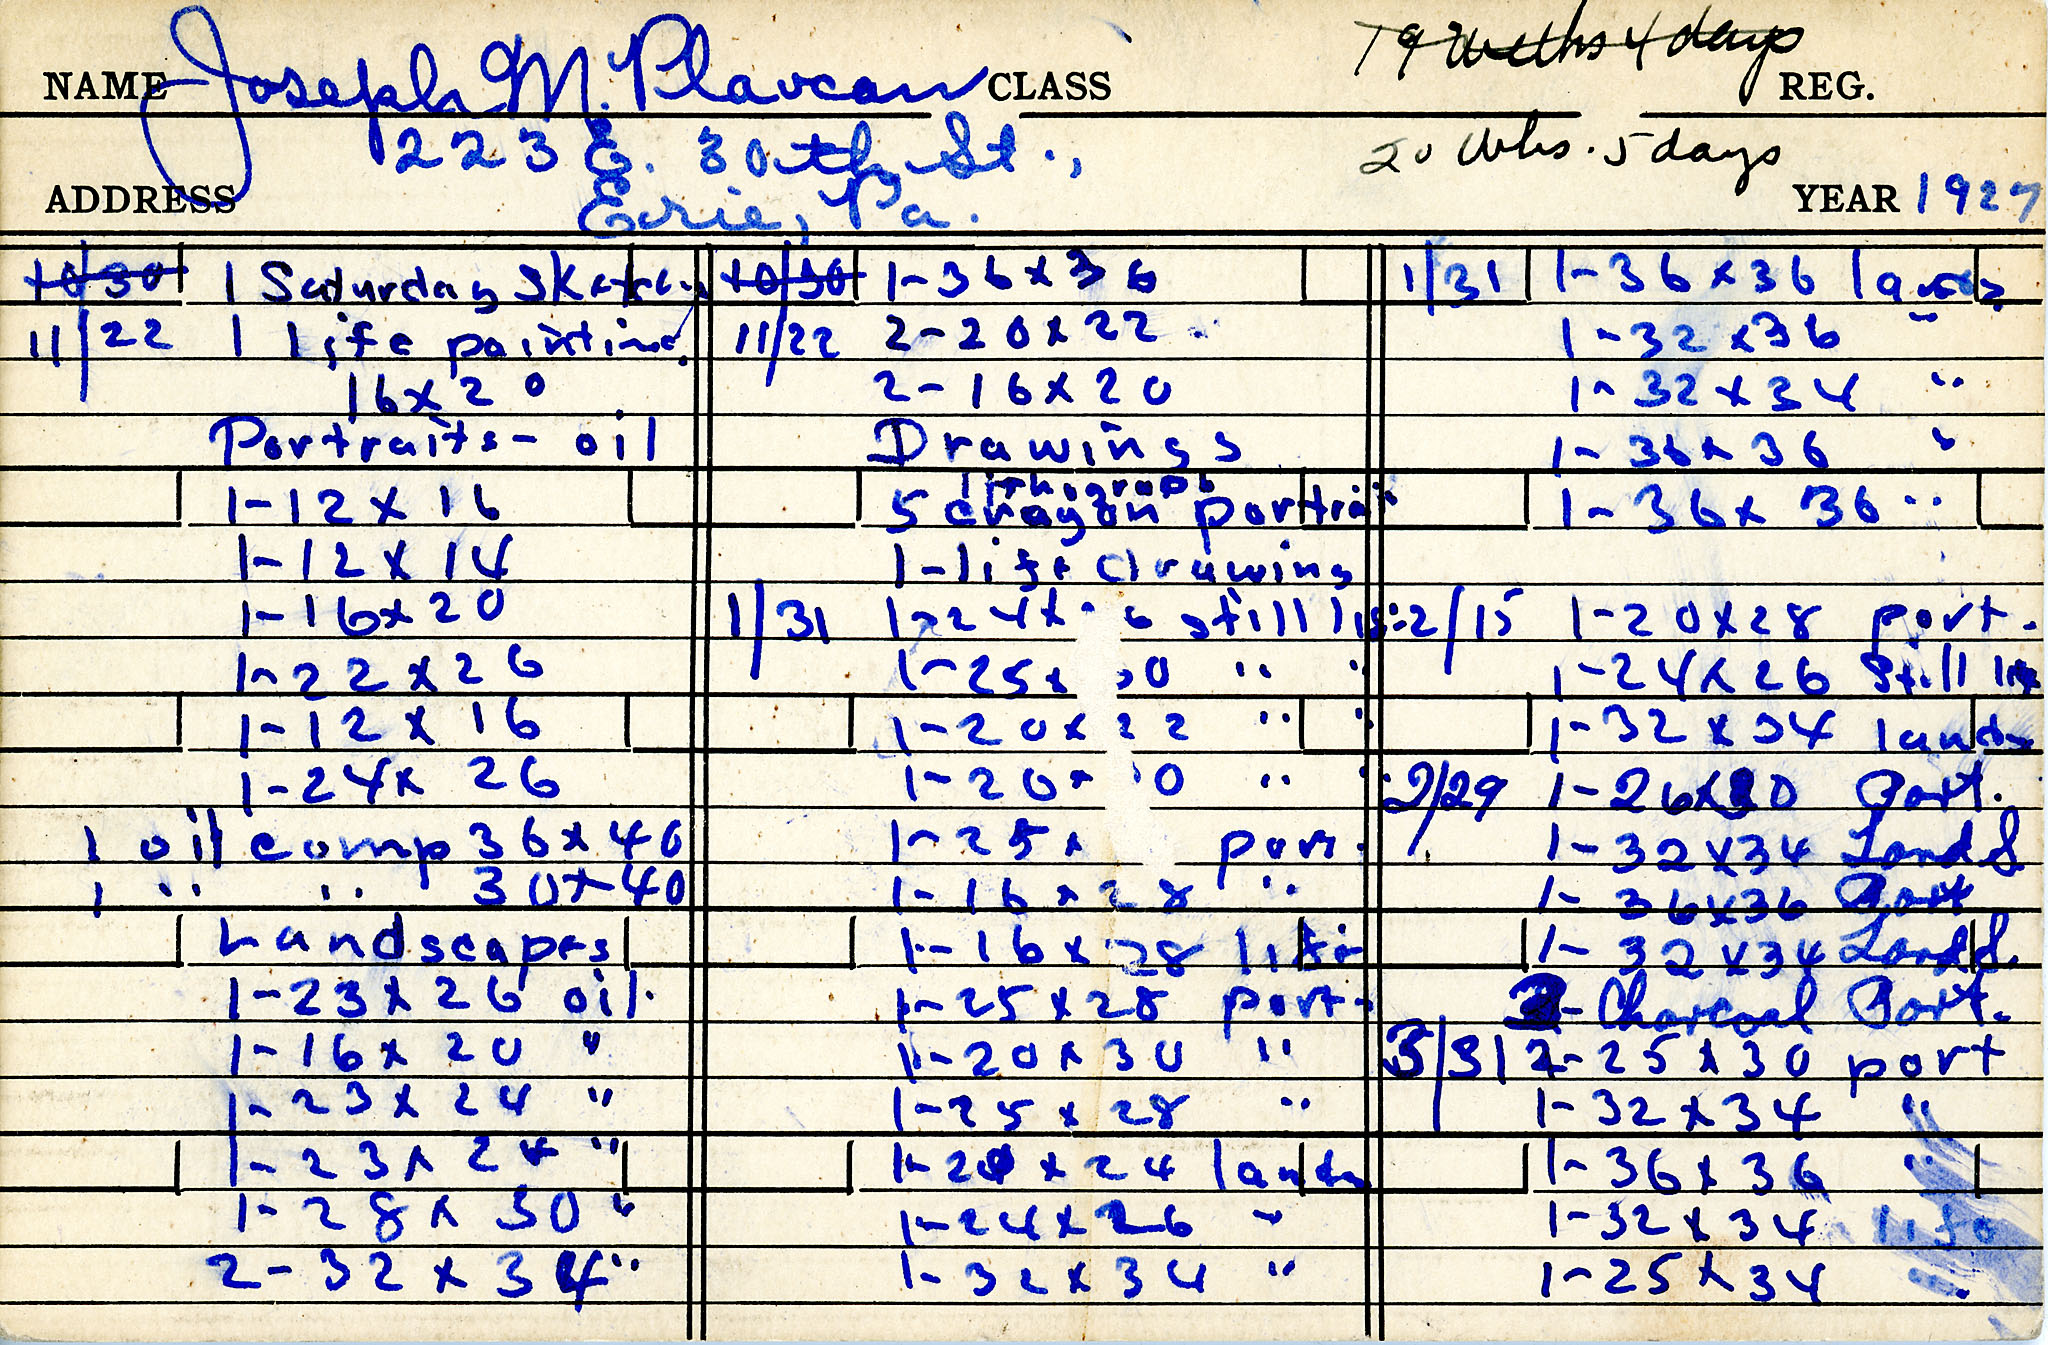 19 Weeks 4 days
NAME Joseph M. Plavcan CLASS REG.
223 E. 30th St.,
20 Wks. 5 days
ADDRESS Erie, Pa. YEAR 1927
10/30 1 Saturday Sketch
11/22 1 life painting
16x20
Portraits - oil
1-12 x 16
1-12 x 14
1-16x20
1-22 x 26
1-12 x 16
1-24x 26
1 oil comp 36x40
1 " " 30x40
Landscapes
1-23x26 oil
1-16x 20 "
1-23x 24 "
1-23x 24 "
1-28 x 30 "
2-32 x 34 "
10/30 1-36 x 36
11/22 2-20x22
2-16x20
Drawings
lithograph
5 crayon portrait
1-life drawing
1/31 1-24x 6 still life
1-25x 30 " "
1-20x 22 " "
1-20x 30 " "
1-25x port.
1-16 x 28 "
1-16 x 28 life
1-25x28 port.
1-20x30 "
1-25x28 "
1-20 x 24 lands
1-24x26 "
1-32x34 "
1/31 1-36x36 lands
1-32 x36 "
1-32x34 "
1-36x36 "
1-36x 36 "
2/15 1-20x28 port.
1-24x26 Still life
1-32 x34 lands
2/29 1-26x30 Port.
1-32x34 Lands
1-36x36 Port
1-32x34 Lands.
2-Charcoal Port.
3/31 2-25x30 port
1-32x34 "
1-36x36 "
1-32x34 life
1-25x34 "